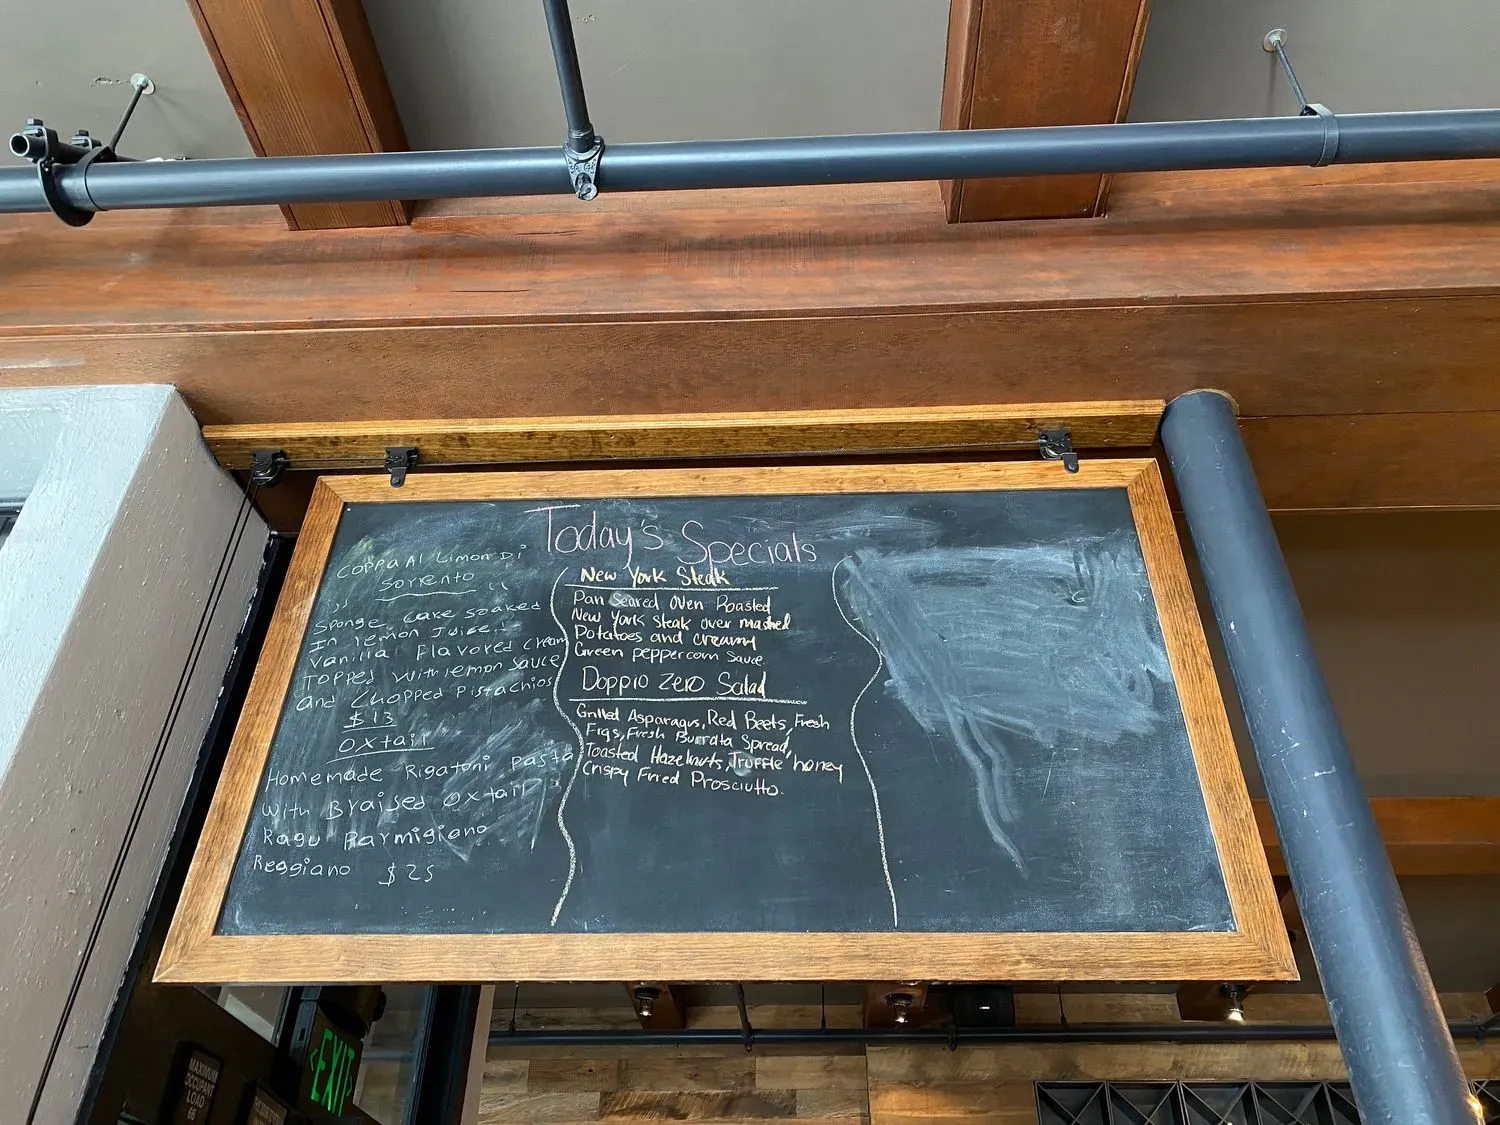 Today's Specials
Coppa Al Limon Di
Sorrento
Sponge cake soaked
In lemon Juice.
Vanilla Flavored cream
Topped With lemon sauce
and Chopped Pistachios
$13
Oxtail
Homemade Rigatoni Pasta
With Braised Oxtail
Ragu Parmigiano
Reggiano $25
New York Steak
Pan Seared Oven Roasted
New York Steak over mashed
Potatoes and creamy
Green peppercorn Sauce.
Doppio Zero Salad
Grilled Asparagus, Red Beets, Fresh
Figs, Fresh Burrata Spread,
Toasted Hazelnuts, Truffle honey
Crispy Fried Prosciutto.
EXIT
MAXIMUM
OCCUPANT
LOAD
66